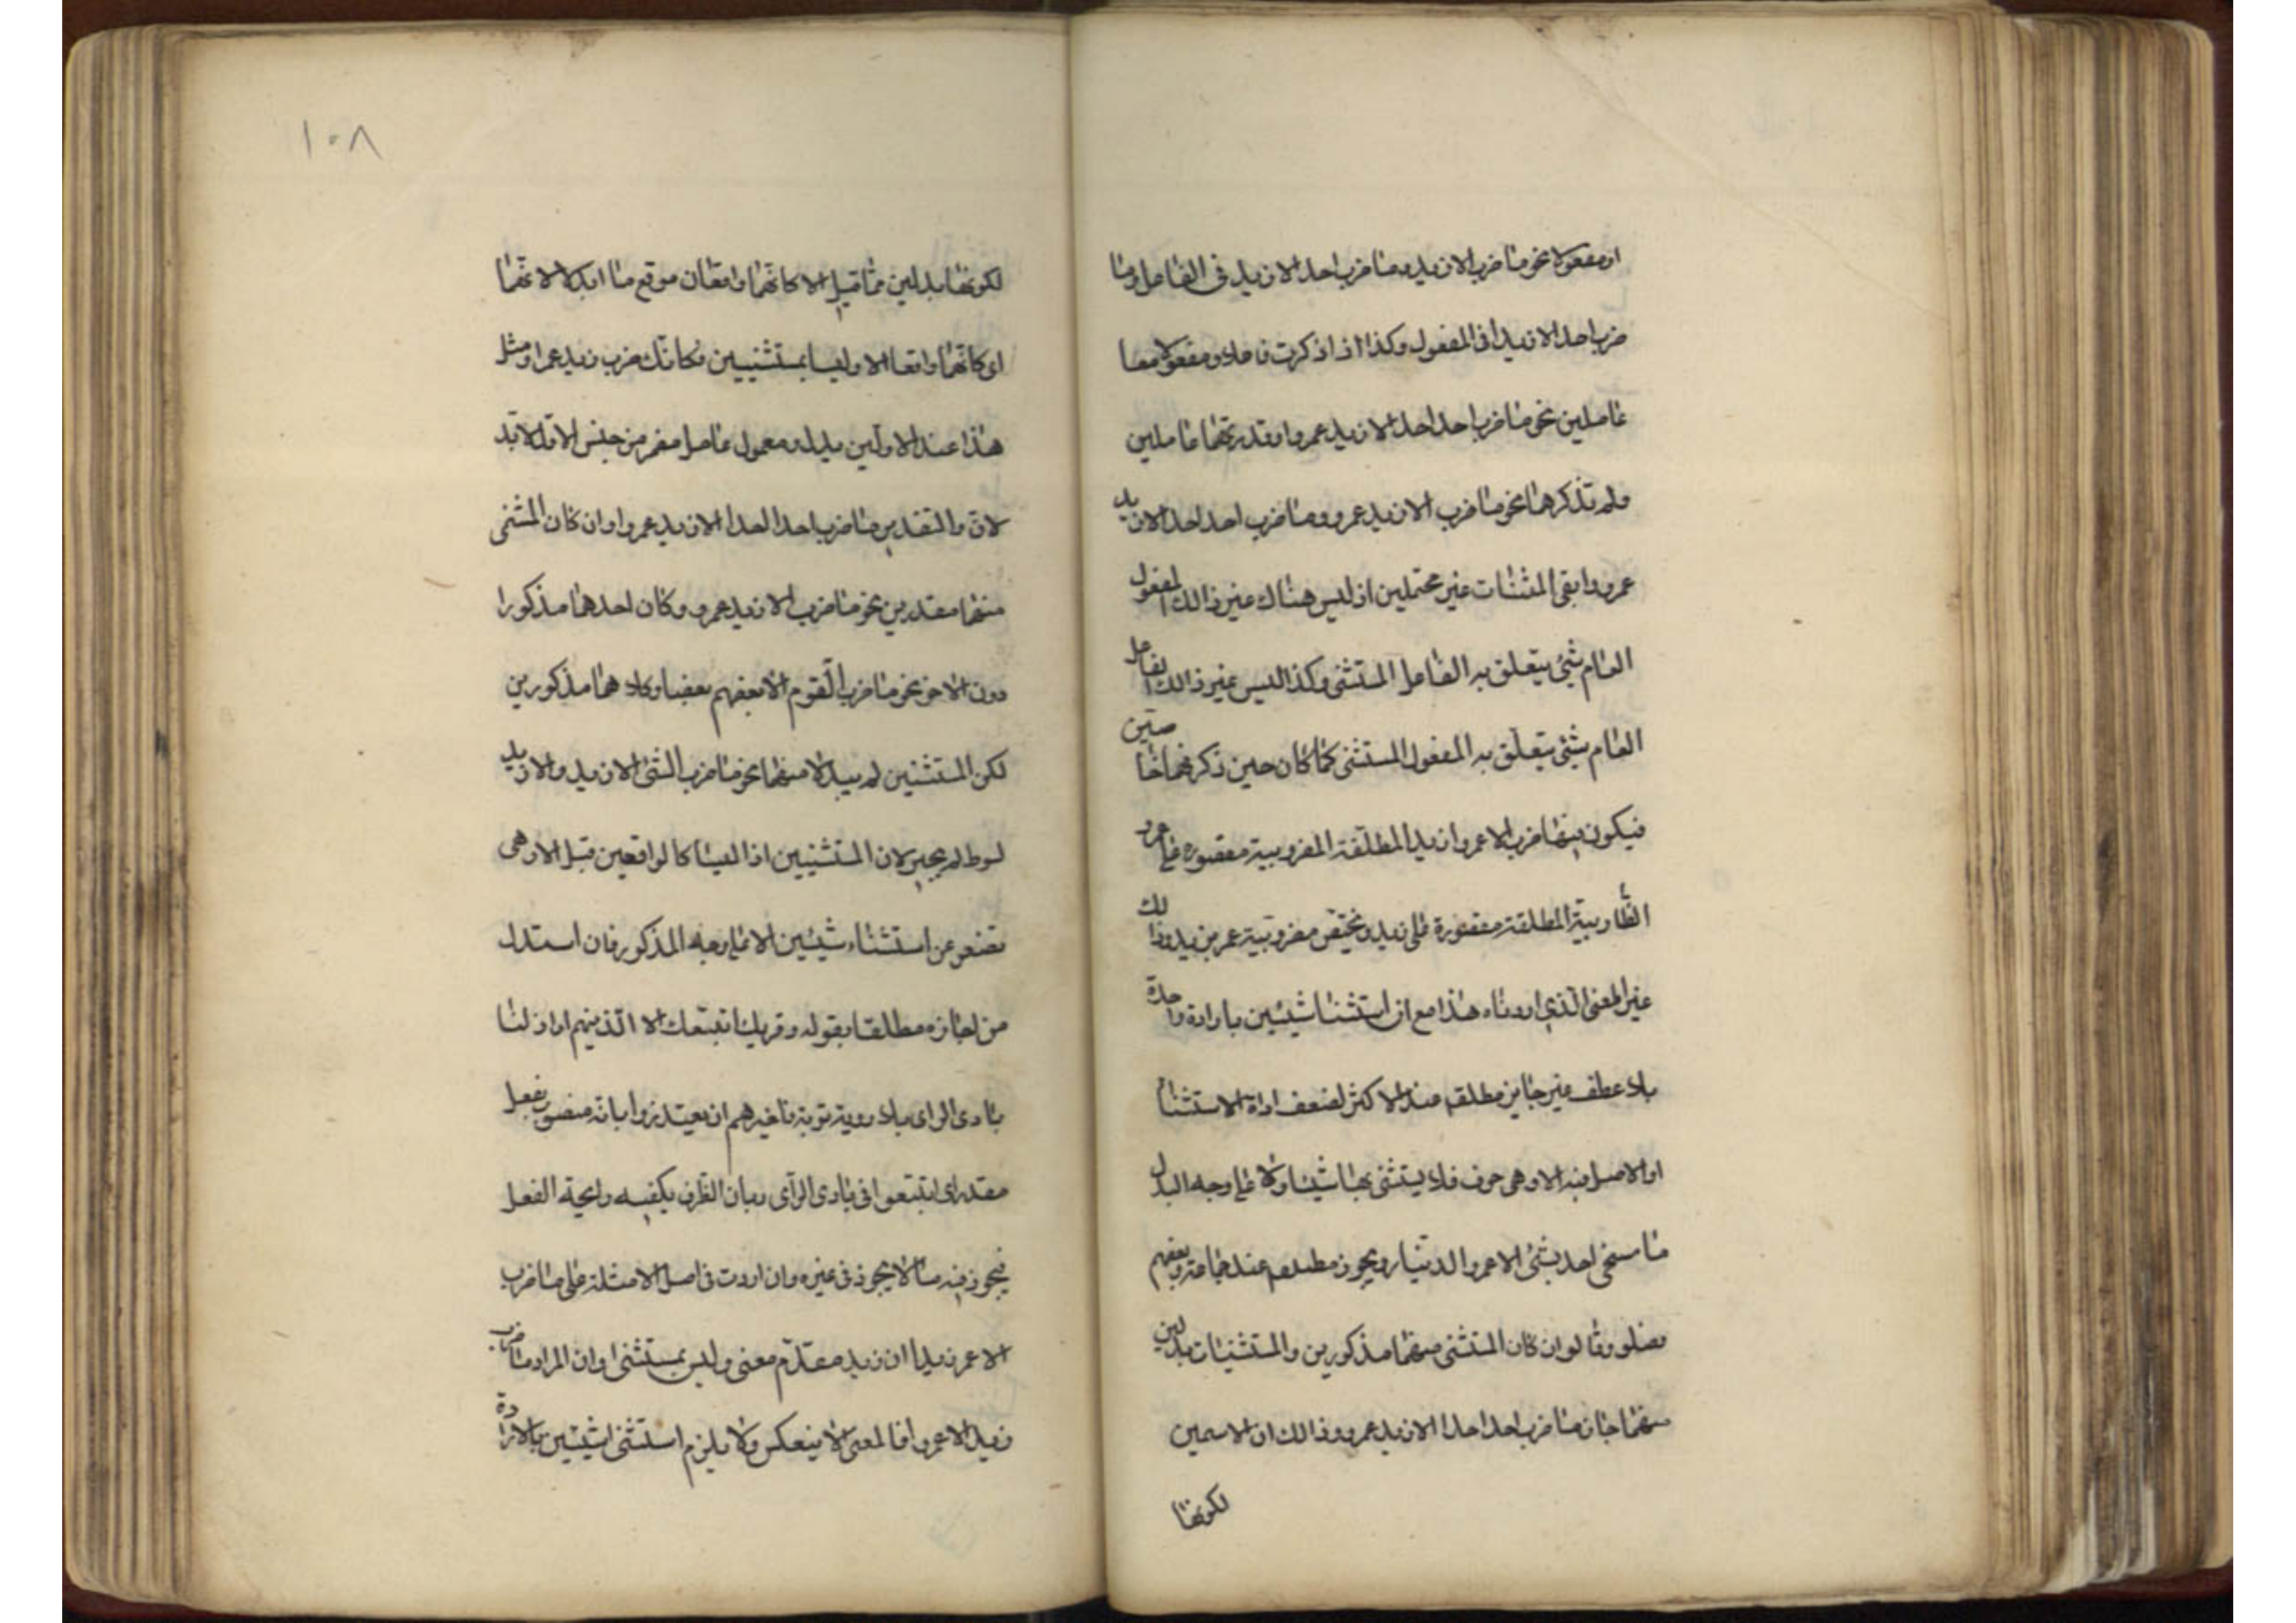 او مفعولا نحو ما ضرب الا زيد وما ضرب احد الا زيد في الفاعل وما
ضرب احد الا زيدا في المفعول وكذا اذا ذكرت فاعلا ومفعولا معا
عاملين نحو ما ضرب احد احدا الا زيد عمروا وقدرتهما عاملين
ولم تذكرهما نحو ما ضرب الا زيد عمرو وما ضرب احد احدا الا زيد
عمرو وابقى المثنات غير محتملين اذ ليس هناك غير ذالك المفعول
العام شئ يتعلق به الفاعل المستثنى وكذا ليس غير ذالك الفاعل
العام شئ يتعلق به المفعول المستثنى كما كان حين ذكر فيما خاصين
فيكون فيهما ضرب الا عمروا زيدا المطلقة المضروبية مقصوره على عمرو
الضاربية المطلقة مقصورة على زيد وتختص مضروبية عمر بزيد وذالك
غير المعنى الذي اردناه هذا مع ان استثنا شيئين باداة واحدة
بلا عطف غير جايز مطلقا عند الاكثر لضعف اداة الاستثناء
او الاصل فيه الا وهى حرف فلا يستثنى بها شيئا ولا على وجه البدل
ما سخى احد بشئ الا عمرو الدينار ويجوز مطلقا عند جماعة وبعضهم
فصلو وقالو ان كان المستثنى منهما مذكورين والمستثنيات بدلين
منهما جاز ما ضرب احد احدا الا زيد عمرو وذالك ان الاسمين
لكونهما
١٠٨
لكونهما بدلين مما قبل الا كانهما واقعان موقع ما ابدلا لانهما
اى كانهما واقعا الا وليسا بمستثنيين فكانك ضرب زيد عمرا ومثل
هذا عند الاولين بدل ومعمول عامل مضمر من جنس الاول لا بد
لان والتقدير ما ضرب احد احدا الا زيد عمروا وان كان المثنى
منهما مقدرين نحو ما ضرب الا زيد عمرو وكان احدهما مذكورا
دون الاخر نحو ما ضرب القوم الا بعضهم بعضا وكلا هما مذكورين
لكن المستثنين لم يبدلا منهما نحو ما ضرب الشئ الا زيد والا زيد
لوط لم يجير لان المستثنيين اذا ليسا كالواقعين قبل الا وهى
تضعو عن استثناء شيئين الا على وجه المذكور فان استدل
من اجازه مطلقا بقوله وقربك اتبعك الا الذينهم اراذلنا
بادى الراى بلا روية توبة تاخيرهم ان يعتذروا بانه منصوب بفعل
مقدر اى ابتبعوا فى بادى الرآى وبان الظرف يكفيه رايحة الفعل
فيجوز فيه ما لا يجوز فى غيره وان اردت فى اصل الامثلة على ما ضرب
الا عمر زيدا ان زيد مقدم معنى وليس بمستثنى وان المراد ما ضرب
زيد الا عمروا فالمعنى لا ينعكس ولا يلزم استثنى اشيئين بالاراده